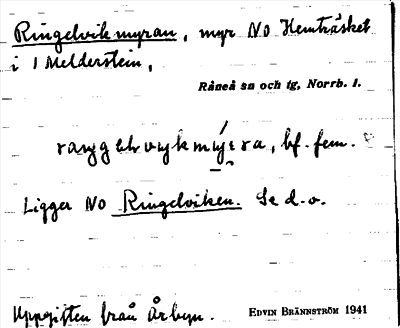 Ringelvikmyran, myr NO Hemträsket
i 1 Melderstein,
Råneå sn och tg, Norrb. l.
bf. fem.
Ligger NO Ringelviken. Se d.o.
Uppgiften från Årbyn.
EDVIN BRÄNNSTRÖM 1941